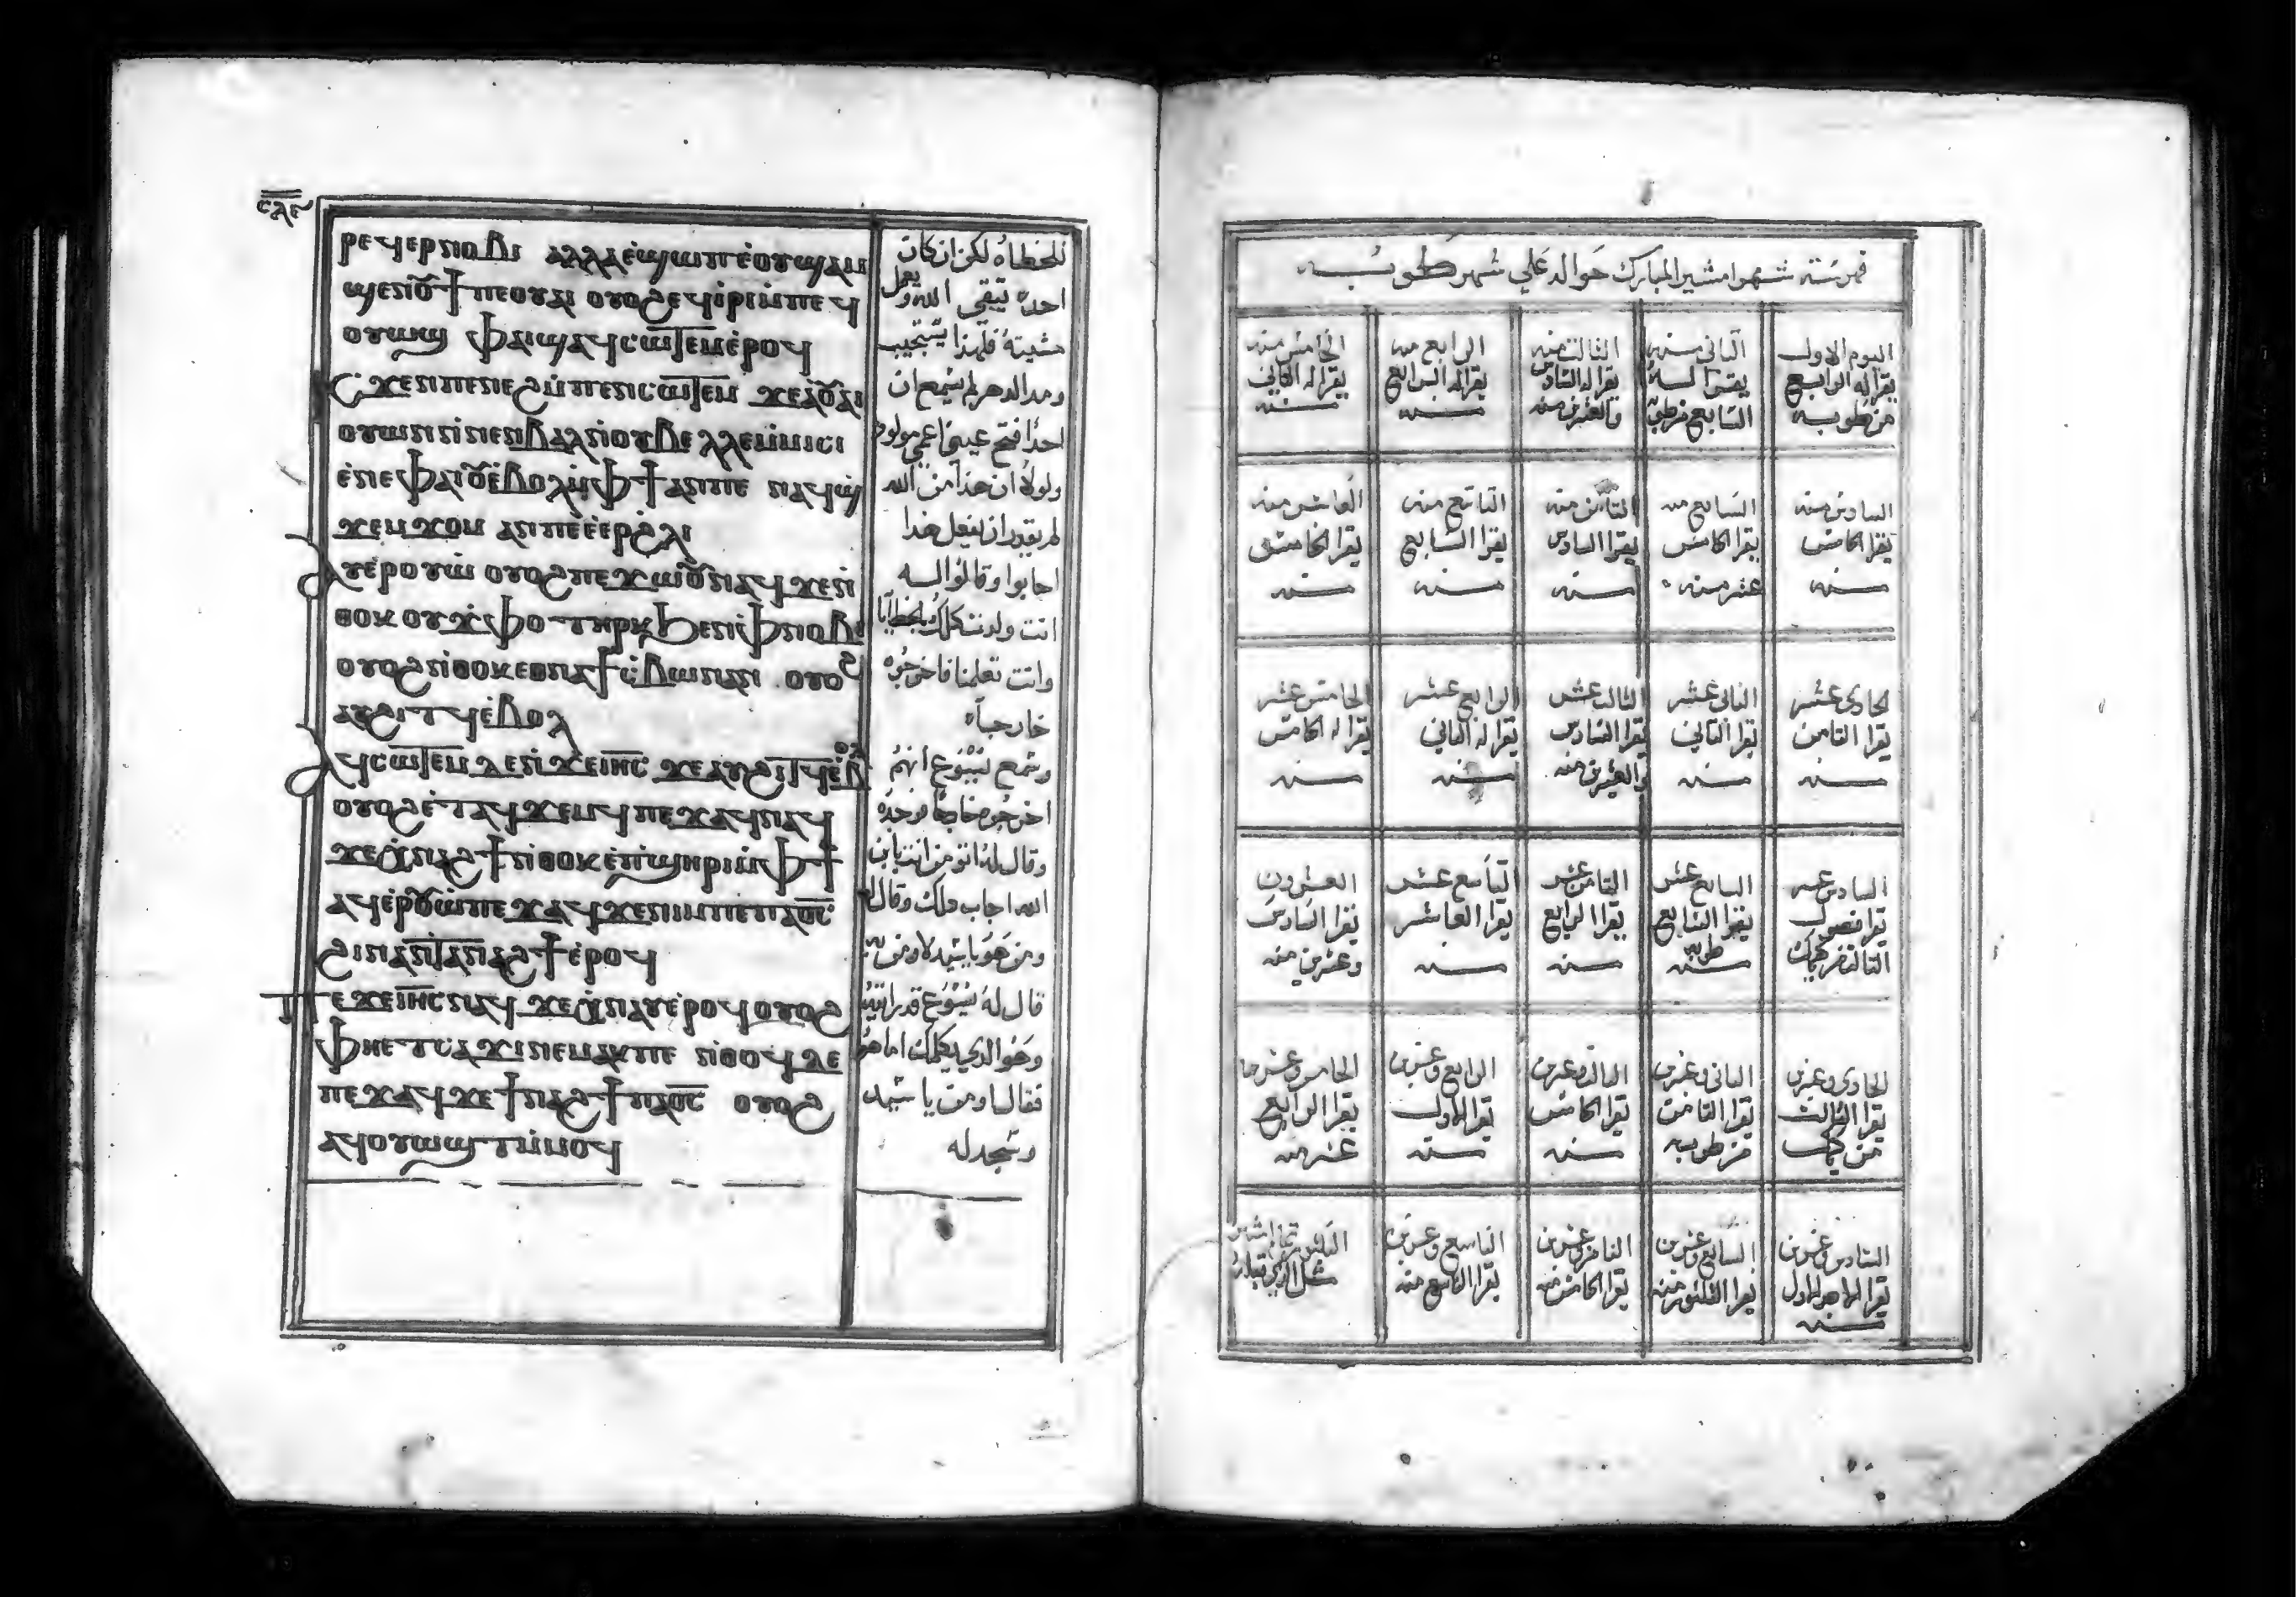 ⲥⲗⲉ
ⲣⲉϥⲉⲣⲛⲟⲃⲓ ⲁⲗⲗⲁ ⲉϣⲱⲡ ⲉⲟⲩϣⲁⲙ
ϣⲉⲛⲟⲩϯ ⲡⲉ ⲟⲩⲁⲓ ⲟⲩⲟϩ ⲉϥⲓⲣⲓ ⲙⲡⲉϥ
ⲟⲩⲱϣ ⲫⲁⲓ ϣⲁϥⲥⲱⲧⲉⲙ ⲉⲣⲟϥ
ϫⲉⲛ ⲡⲉⲛⲉϩ ⲙⲡⲉⲛⲥⲱⲧⲉⲙ ϫⲉ ⲁⲟⲩⲁⲓ
ⲟⲩⲱⲛ ⲛⲛⲉⲛⲃⲁⲗ ⲛⲟⲩⲃⲉⲗⲗⲉ ⲙⲙⲓⲥⲓ
ⲉⲛⲉ ⲫⲁⲓ ⲟⲩⲉⲃⲟⲗ ⲙⲫϯ ⲁⲛ ⲡⲉ ⲛⲁϥϣ
ϫⲉⲙϫⲟⲙ ⲁⲛ ⲡⲉ ⲉⲉⲣϩⲗⲓ
ⲁⲩⲉⲣⲟⲩⲱ ⲟⲩⲟϩ ⲡⲉϫⲱⲟⲩ ⲛⲁϥ ϫⲉ ⲛ
ⲑⲟⲕ ⲟⲩϫⲫⲟ ⲧⲏⲣⲕ ϧⲉⲛ ⲫⲛⲟⲃⲓ
ⲟⲩⲟϩ ⲛⲑⲟⲕ ⲉⲑⲛⲁϯⲥⲃⲱ ⲛⲁⲛ ⲟⲩⲟϩ
ⲁⲩϩⲓⲧϥ ⲉⲃⲟⲗ
ⲁϥⲥⲱⲧⲉⲙ ⲇⲉ ⲛϫⲉ ⲓⲏⲥ ϫⲉ ⲁⲩϩⲓⲧϥ ⲉⲃⲟⲗ
ⲟⲩⲟϩ ⲉⲧⲁϥϫⲉⲙϥ ⲡⲉϫⲁϥ ⲛⲁϥ
ϫⲉ ⲭⲛⲁϩϯ ⲛⲑⲟⲕ ⲉⲡϣⲏⲣⲓ ⲙⲫϯ
ⲁϥⲉⲣⲟⲩⲱ ⲡⲉϫⲁϥ ϫⲉ ⲛⲓⲙ ⲡⲉ ⲡⲁⲟⲥ
ϩⲓⲛⲁ ⲛⲧⲁⲛⲁϩϯ ⲉⲣⲟϥ
ⲡⲉϫⲉ ⲓⲏⲥ ⲛⲁϥ ϫⲉ ⲭⲛⲁⲩ ⲉⲣⲟϥ ⲟⲩⲟϩ
ⲫⲏⲉⲧⲥⲁϫⲓ ⲛⲉⲙⲁⲕ ⲡⲉ ⲛⲑⲟϥ ⲇⲉ
ⲡⲉϫⲁϥ ϫⲉ ϯⲛⲁϩϯ ⲡⲁⲟⲥ ⲟⲩⲟϩ
ⲁϥⲟⲩⲱϣⲧ ⲙⲙⲟϥ
للخطاه لكن ان كان
احد يتقي الله ويعمل
مشيته فلهذا يستجيب
ومد الدهر لم يسمع ان
احدا فتح عيني اعمي مولود
ولولا ان هذا من الله
لم يقدر ان يفعل هذا
اجابوا وقالوا له
انت ولدت كلك بالخطايا
وانت تعلمنا فاخرجوه
خارجاً
وسمع يسوع انهم
اخرجوه خارجا فوجده
وقال له اتومن انت بابن
الله اجاب ذلك وقال
ومن هو يا سيد لاومن به
قال له يسوع قد رايته
وهو الذي يكلمك اما هو
فقال اومن يا سيد
وسجد له
فهرسته شهر امشير المبارك حواله علي شهر طوبه
اليوم الاول يقرا له الرابع من طوبه
الثاني منه يقرا له السابع من طوبه
الثالث منه يقرا له السادس والعشرين منه
الرابع منه يقرا له الرابع منه
الخامس منه يقرا له الثاني منه
السادس منه يقرا الخامس منه
السابع منه يقرا الخامس عشر منه
الثامن منه يقرا السادس منه
التاسع منه يقرا السابع منه
العاشر منه يقرا الخامس منه
الحادي عشر يقرا الثامن منه
الثاني عشر يقرا الثاني منه
الثالث عشر يقرا السادس والعشرين منه
الرابع عشر يقرا له الثاني منه
الخامس عشر يقرا له الخامس منه
السادس عشر يقرا فصول الثالث من كيهك
السابع عشر يقرا السابع طوبه منه
الثامن عشر يقرا الرابع منه
التاسع عشر يقرا العاشر منه
العشرون يقرا السادس وعشرين منه
الحادي وعشرين يقرا الثالث من كيهك
الثاني وعشرين يقرا الثامن من طوبه
الثالث وعشرين يقرا الخامس منه
الرابع وعشرين يقرا الاول منه
الخامس وعشرين يقرا الرابع عشر منه
السادس وعشرين يقرا له الاول منه
السابع وعشرين يقرا الثلثون منه
الثامن وعشرين يقرا الخامس منه
التاسع وعشرين يقرا التاسع منه
الثلثون مثل الذي